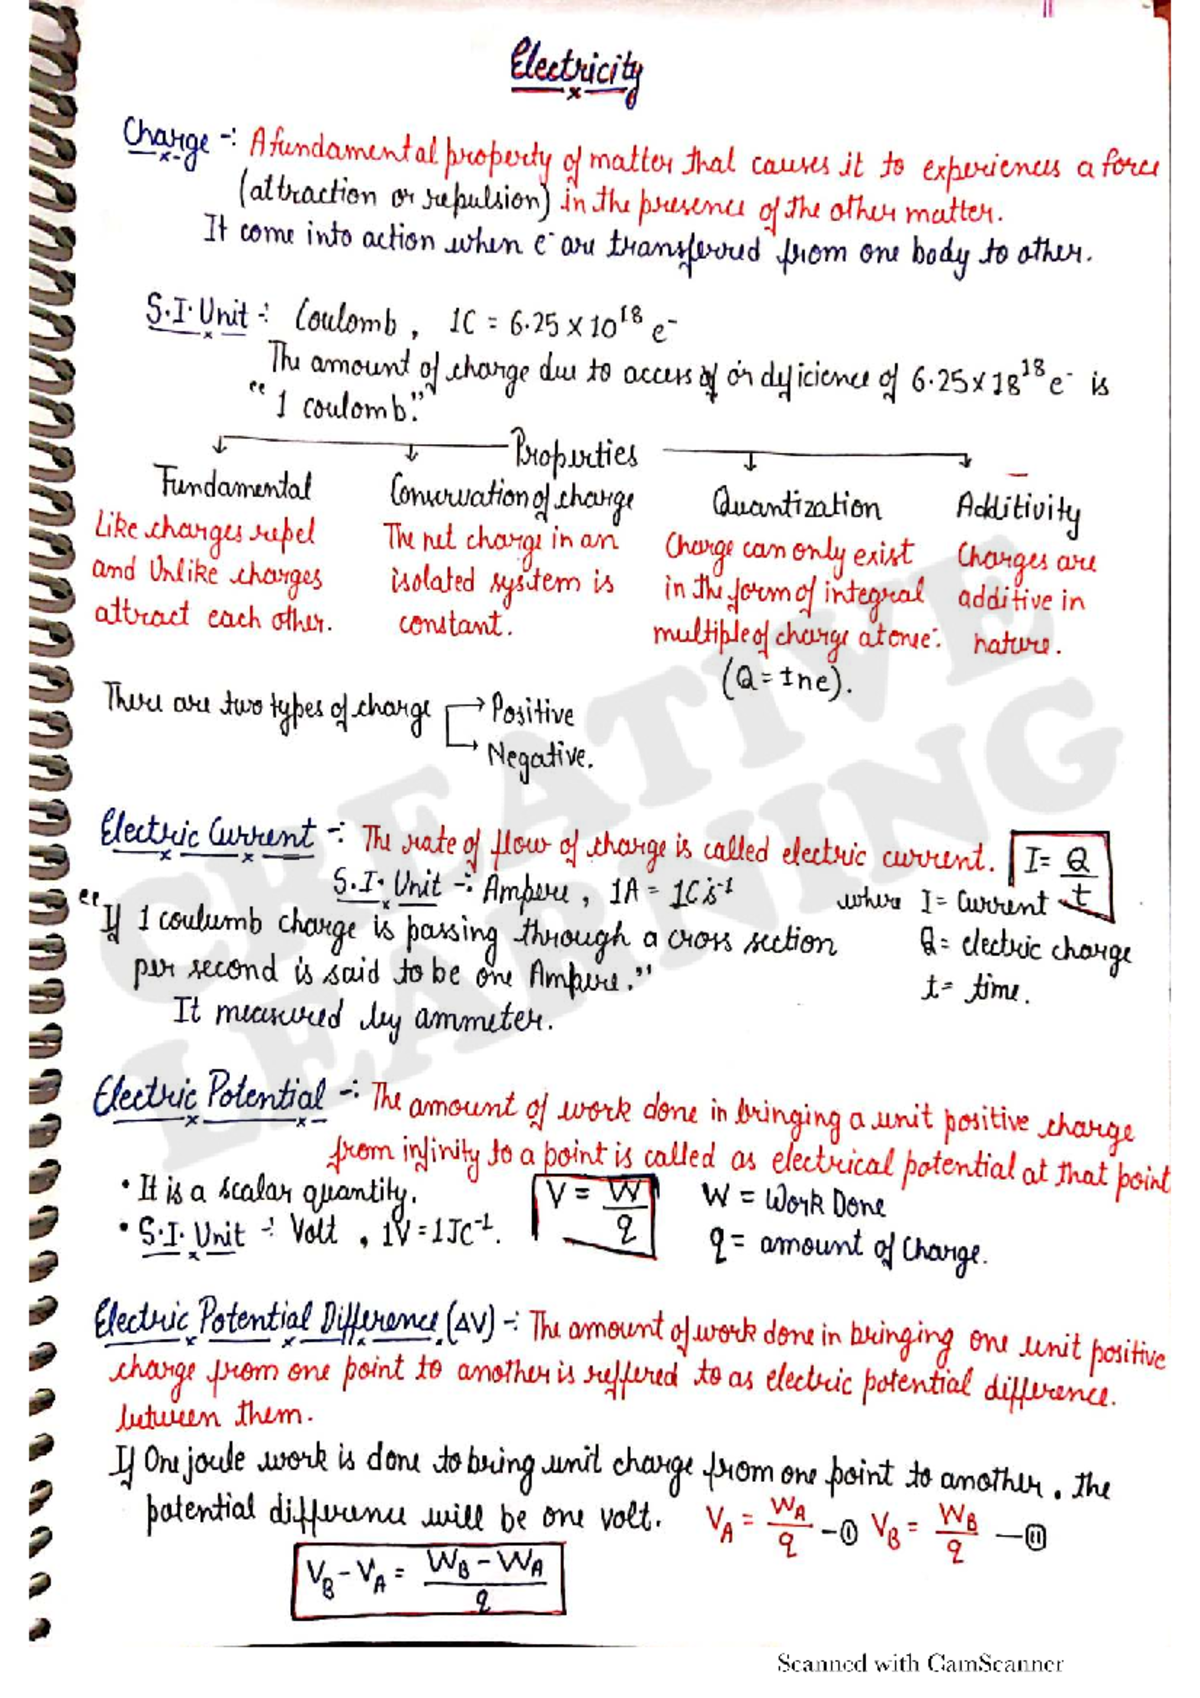 Electricity
Charge -: A fundamental property of matter that causes it to experiences a force
(attraction or repulsion) in the presence of the other matter.
It come into action when e⁻ are transferred from one body to other.
S.I. Unit -: Coulomb, 1C = 6.25 × 10¹⁸ e⁻
The amount of charge due to access of or deficience of 6.25 × 18¹⁸ e⁻ is
"1 coulomb."
Properties
Fundamental
Like charges repel
and Unlike charges
attract each other.
Conservation of charge
The net charge in an
isolated system is
constant.
Quantization
Charge can only exist
in the form of integral
multiple of charge atone:
(Q = ±ne).
Additivity
Charges are
additive in
nature.
There are two types of charge → Positive
→ Negative.
Electric Current -: The rate of flow of charge is called electric current. I = Q/t
S.I. Unit -: Ampere, 1A = 1Cs⁻¹
where I = Current
Q = electric charge
t = time.
"If 1 coulumb charge is passing through a cross section
per second is said to be one Ampere."
It measured by ammeter.
Electric Potential -: The amount of work done in bringing a unit positive charge
from infinity to a point is called as electrical potential at that point
• It is a scalar quantity.
• S.I. Unit -: Volt, 1V = 1JC⁻¹.
V = W/q
W = Work Done
q = amount of Charge.
Electric Potential Difference (ΔV) -: The amount of work done in bringing one unit positive
charge from one point to another is reffered to as electric potential difference.
between them.
If One joule work is done to bring unit charge from one point to another. the
potential difference will be one volt. V_A = W_A/q -① V_B = W_B/q -⑪
V_B - V_A = W_B - W_A / q
CREATIVE
LEARNING
Scanned with CamScanner